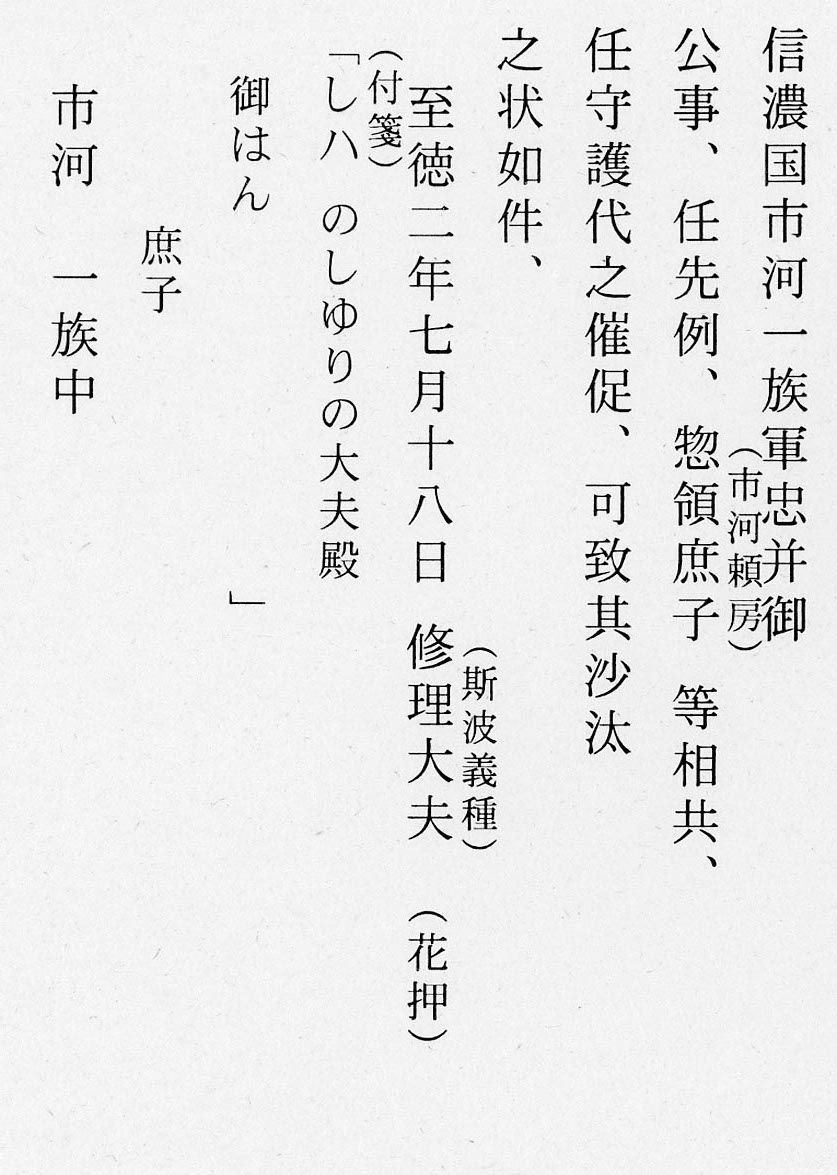 信濃国市河一族軍忠并御
（市河頼房）
公事、任先例、惣領庶子　等相共、
任守護代之催促、可致其沙汰
之状如件、
（斯波義種）
至徳二年七月十八日　修理大夫　（花押）
（付箋）
「しハ　のしゆりの大夫殿
御はん　　　　　　　　」
庶子
市河　一族中